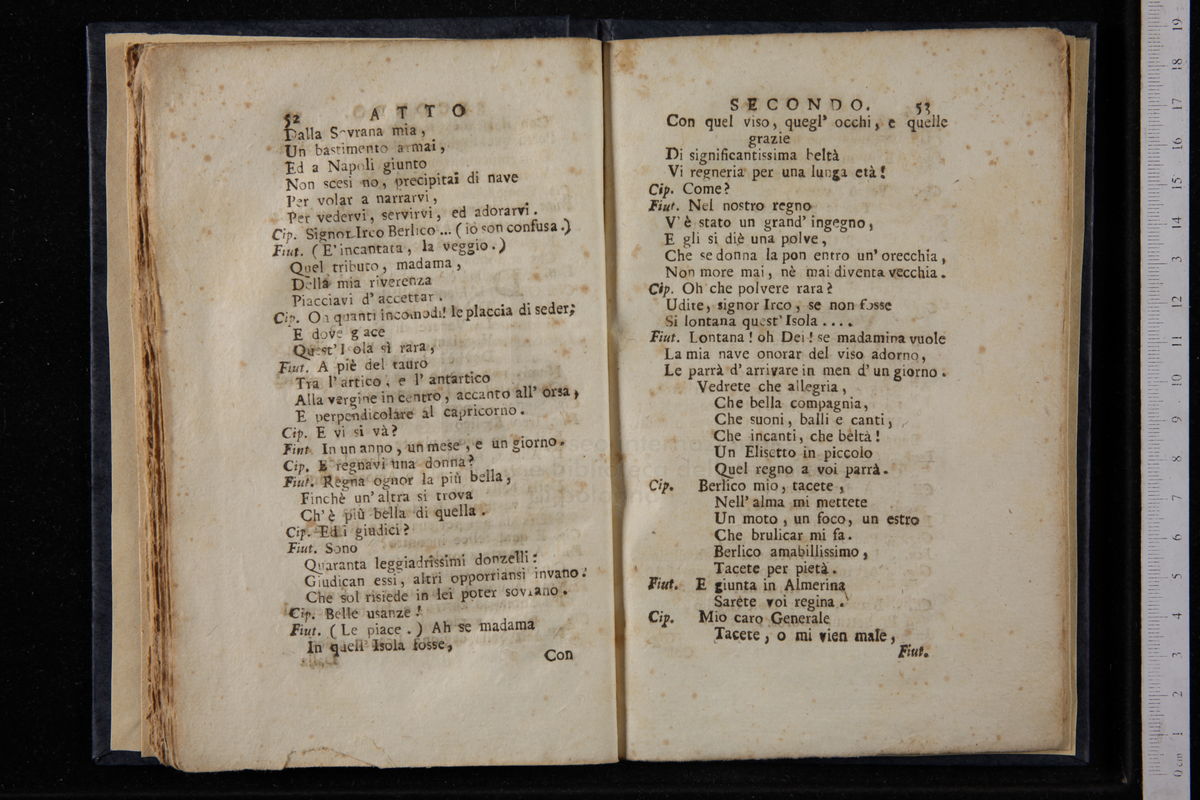 52 ATTO
Dalla Sovrana mia,
Un bastimento armai,
Ed a Napoli giunto
Non scesi no, precipitai di nave
Per volar a narrarvi,
Per vedervi, servirvi, ed adorarvi.
Cip. Signor Irco Berlico... (io son confusa.)
Fiut. (E' incantata, la veggio.)
Quel tributo, madama,
Della mia riverenza
Piacciavi d' accettar.
Cip. Oh quanti incomodi! le piaccia di seder;
E dove giace
Quest' Isola sì rara,
Fiut. A piè del tauro
Tra l' artico, e l' antartico
Alla vergine in centro, accanto all' orsa,
E perpendicolare al capricorno.
Cip. E vi si và?
Fint. In un anno, un mese, e un giorno.
Cip. E regnavi una donna?
Fiut. Regna ognor la più bella,
Finchè un' altra si trova
Ch' è più bella di quella.
Cip. Ed i giudici?
Fiut. Sono
Quaranta leggiadrissimi donzelli:
Giudican essi, altri opporriansi invano:
Che sol risiede in lei poter sovrano.
Cip. Belle usanze!
Fiut. (Le piace.) Ah se madama
In quell' Isola fosse,
Con
SECONDO. 53
Con quel viso, quegl' occhi, e quelle
grazie
Di significantissima beltà
Vi regneria per una lunga età!
Cip. Come?
Fiut. Nel nostro regno
V' è stato un grand' ingegno,
E gli si diè una polve,
Che se donna la pon entro un' orecchia,
Non more mai, nè mai diventa vecchia.
Cip. Oh che polvere rara?
Udite, signor Irco, se non fosse
Si lontana quest' Isola ....
Fiut. Lontana! oh Dei! se madamina vuole
La mia nave onorar del viso adorno,
Le parrà d' arrivare in men d' un giorno.
Vedrete che allegria,
Che bella compagnia,
Che suoni, balli e canti,
Che incanti, che beltà!
Un Elisetto in piccolo
Quel regno a voi parrà.
Cip. Berlico mio, tacete,
Nell' alma mi mettete
Un moto, un foco, un estro
Che brulicar mi fa.
Berlico amabillissimo,
Tacete per pietà.
Fiut. E giunta in Almerina
Sarete voi regina.
Cip. Mio caro Generale
Tacete, o mi vien male,
Fiut.
0 cm 1 2 3 4 5 6 7 8 9 10 11 12 13 14 15 16 17 18 19